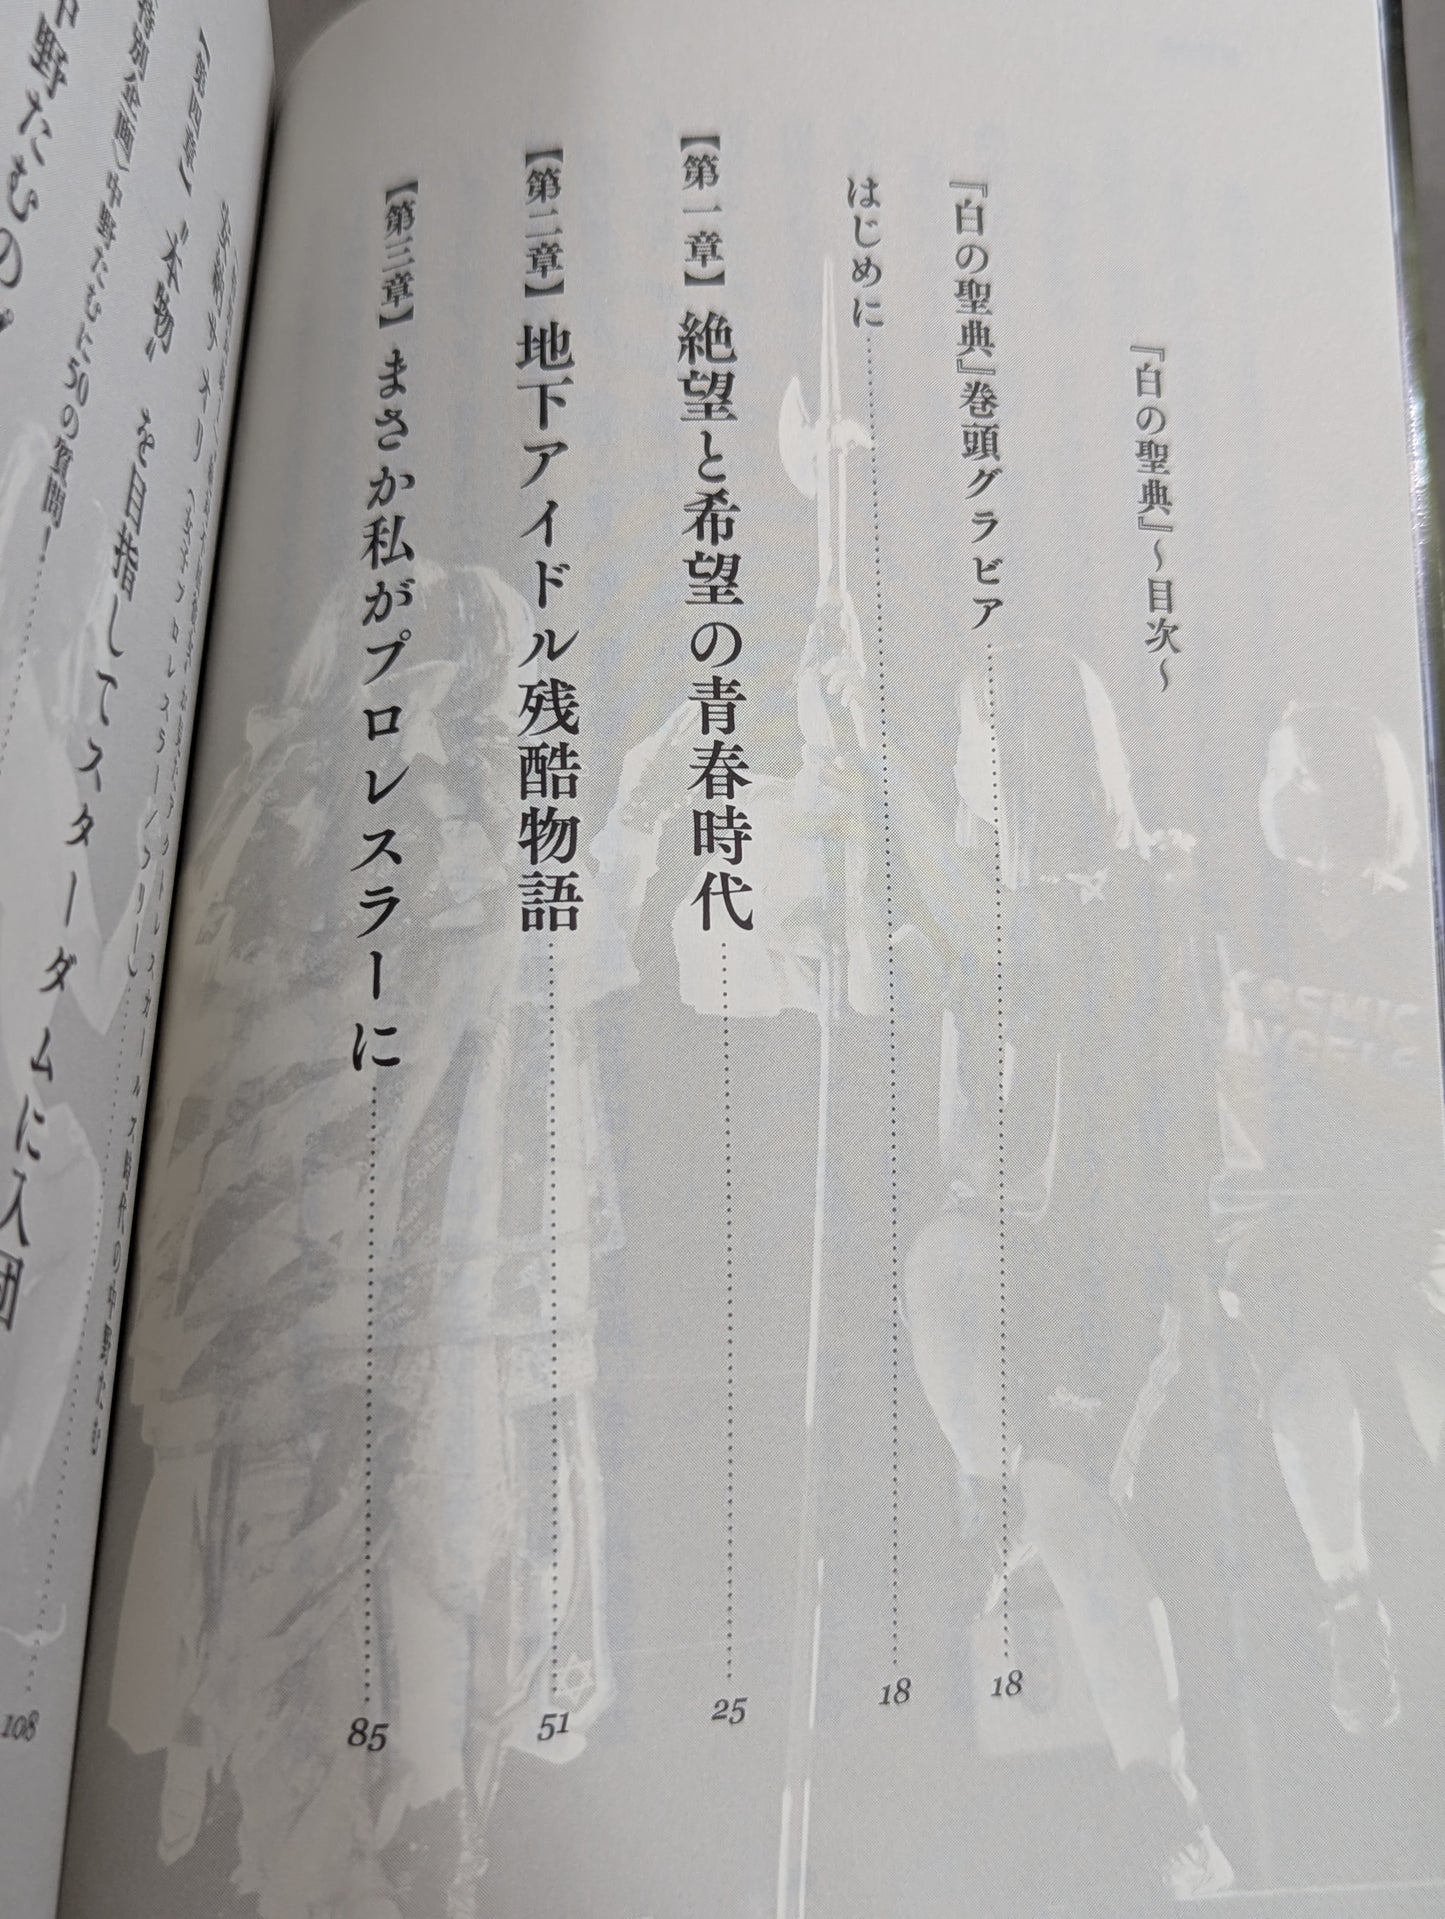 『白の聖典』〜目次〜
『白の聖典』巻頭グラビア 18
はじめに 18
【第一章】絶望と希望の青春時代 25
【第二章】地下アイドル残酷物語 51
【第三章】まさか私がプロレスラーに 85
【第四章】“本物”を目指してスターダムに入団
中野たむに50の質問！ 108
中野たむの